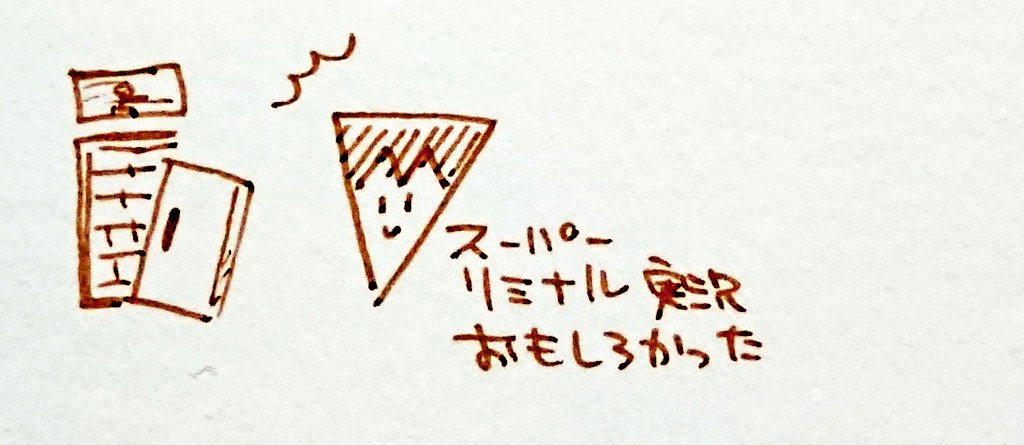 スーパー
リミナル実況
おもしろかった